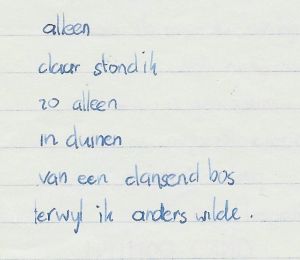 alleen
daar stond ik
zo alleen
in duinen
van een dansend bos
terwyl ik anders wilde.